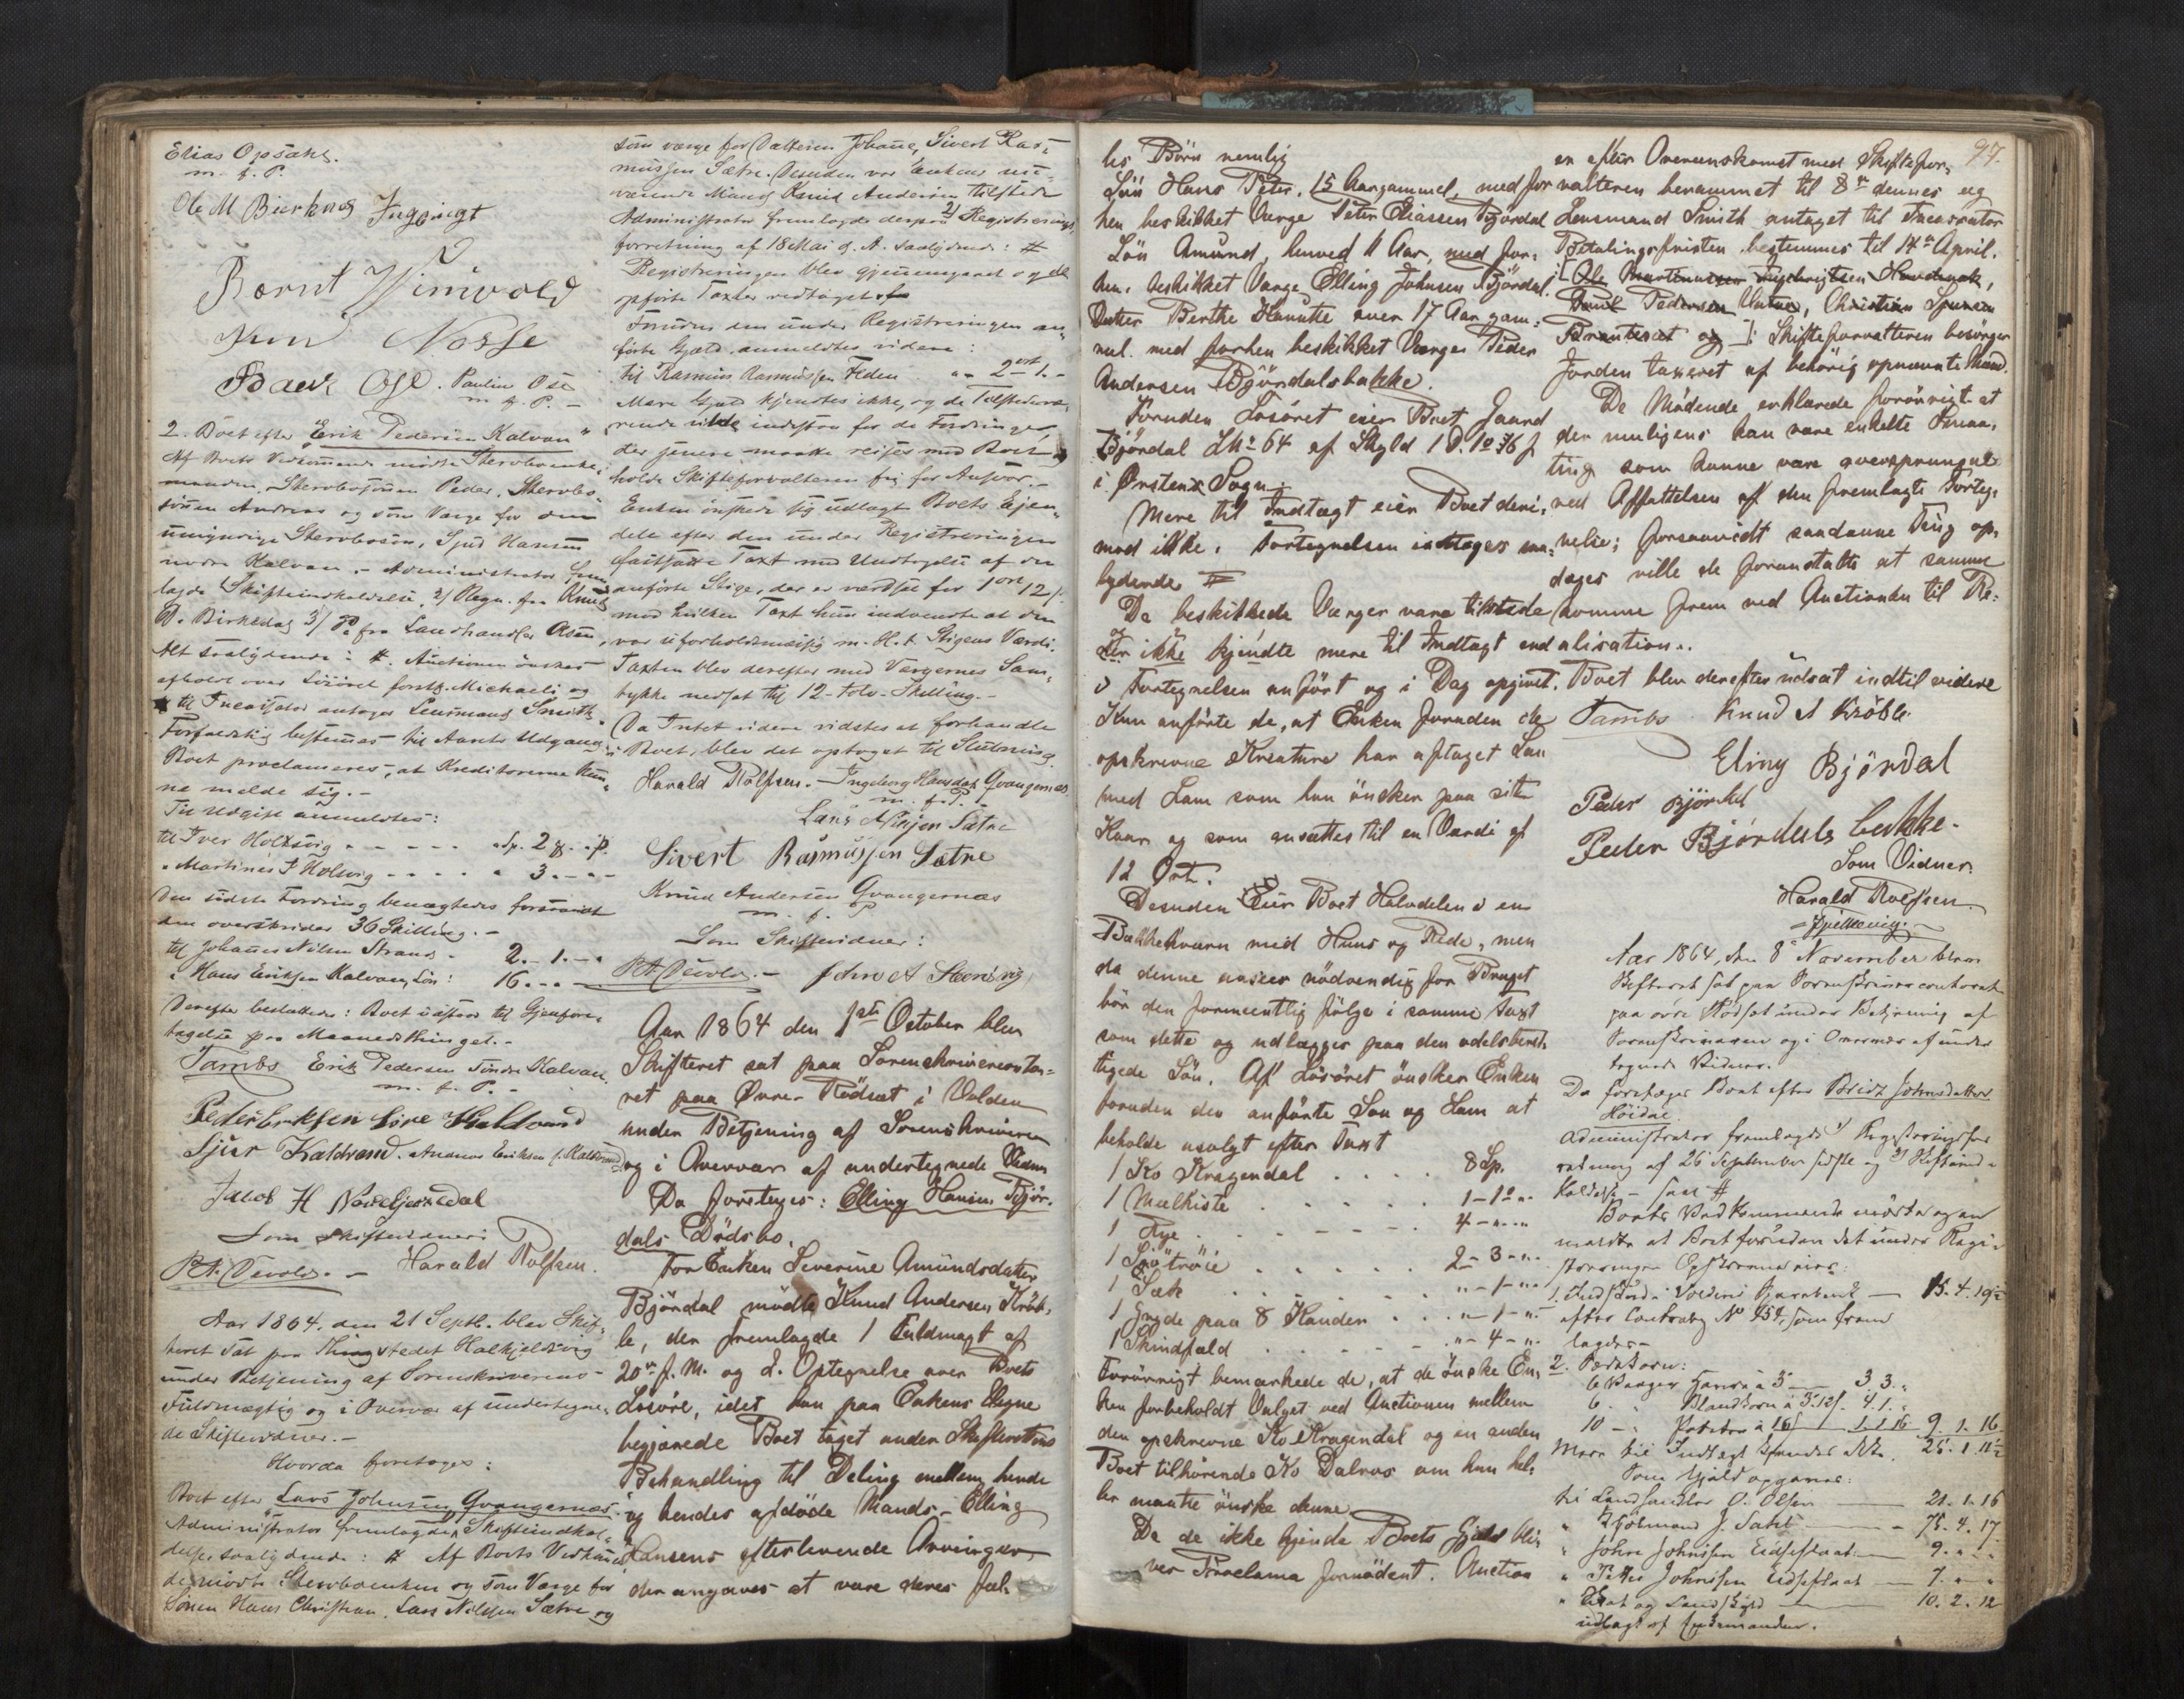 Elias Opsahl.
m. f. P.
Ole M Bierknes Ingbrigt
Bernt Wimvold
Ose. Paulin Ose
m. f. P. -
2. Boet efter Erik Pedersen Kalvan"
Af Boets Vedkommende mødte Stervboenke,
manden, Stervbosønnen Peder, Stervbo,
sønnen Andreas og som Værge for den
umyndige Stervbosøn, Sjur Hansen
Kalvan. - Administrator frem,
lagde Skifteindkaldelse, 2/ Regn. fra Knud
A. Birkedag 3/ Do fra Landhandler Olsen,
Alt saalydende: #. Auctionen ønskes
afholdt over Løsøret førstk. Michaeli og
til Incassator antages Lensmand Smith.
Forfaldstid bestemmes til Aarets Udgang
Boet proclameres, at Kreditorerne kun,
ne melde sig. -
Til Udgift anmeldtes:
til Iver Holtsvig - - - - - Sp. 2 - -
" Martinus I Holsvig - - - - " 3. - " -
Den sidste Fordring benægtedes forsaavidt
den overskrider 36 Skilling. -
til Johannes Nilsen Strand - 2. - 1. - "
" Hans Eriksen Kalvan, Løn: 16. - " -
Derefter besluttedes: Boet udsat til Gjenfore,
tagelse paa Maanedsthinget. -
Tambs Erik Pedersen Søndre Kalvan.
m. f. P. -
Peder Eriksen
Sjur Kaldvand. Andreas Eriksen f. Kaldvand
Jacob H
Som Skiftevidner:
P.A. Devold. - Harald Rolfsen.
Aar 1864. den 21 Septb. blev Skif,
teret sat paa Thingstedet Halkjeldsvig
under Betjening af Sorenskriverens -
Fuldmægtig og i Overvær af undertegne,
de Skiftevidner. -
Hvorda foretoges:
Boet efter Lars Johnsen Qvangernæs.
Administrator fremlagde 1/ Skifteindkal,
delse, saalydende: # Af Boets Vedkommen
de mødte Stervboenken og som Værge for
Sønnen Hans Christian, Lars Nilssen Sætre og
som værge for Datteren Johanne, Sivert Ras,
mussen Sætre. Desuden var Enkens nu,
værende Mand Knud Andersen tilstede
Administrator fremlagde derpaa 2/ Registrerings,
forretning af 18 Mai d. A. saalydende: #
Registreringen blev gjennemgaaet og de
opførte Taxter vedtaget
Foruden den under Registreringen an,
førte Gjæld, anmeldtes videre:
til Rasmus Rasmussen Heden " - 2 ort 1. -
Mere Gjæld kjendtes ikke, og de Tilstedevæ,
rende vilde indestaa for de Fordringer
der senere maatte reises mod Boet og
holde Skifteforvalteren fri for Ansvar. -
Enken ønskede sig udlagt Boets Ejen,
dele efter den under Registreringen
fastsatte Taxt med Undtagelse af den
anførte Stige, der er værdsat for 1 ort 12 s.
mod hvilken Taxt hun indvendte at den
var uforholdsmæssig m. H. t. Stigens Værdi.
Taxten blev derefter med Værgernes Sam,
tykke nedsat til 12 - tolv - Skilling. -
Da Intet videre vidstes at forhandle
i Boet, blev det optaget til Slutning.
Harald Rolfsen. - Ingeborg Hansdat Qvangernæs
m. f. P. -
Lars Nilssen Sætre
Sivert Rasmussen Sætre
Knud Andersen Qvangernæs
m. f. P
Som Skiftevidner:
P.A. Devold. - John A Steensvig
Aar 1864 den 1ste October blev
Skifteret sat paa Sorenskrivercontoi=
ret paa Øvre Rødsæt i Volden
under Betjening af Sorenskriveren
og i Overvær af undertegnede Vidner
Da foretoges: Elling Hansen Bjør,
dals Dødsbo.
For Enken Severine Amundsdatter
Bjørdal mødte Knud Andersen Krøb,
le, der fremlagde 1 Fuldmagt af
20de f. M. og 2. Optegnelse over Boets
Løsøre, idet han paa Enkens Vegne
begjærede Boet taget under Skifterettens
Behandling til Deling mellem hende
og hendes afdøde Mands - Elling
Hansens efterlevende Arvinger
der angaves at være deres fæl,
97.
les Børn nemlig
Søn Hans Peter, 15 Aar gammel, med for
hen beskikket Værge Peter Eliassen Bjørdal
Søn Amund, henved 11 Aar, med for,
hen beskikket Værge Elling Johnsen Bjørdal.
Datter Berthe Hanutte over 17 Aar gam,
mel. med forhen beskikket Værge Peder
Andersen Bjørdalsbakke.
Foruden Løsøret eier Boet Jaard
Bjørdal LNo 64 af Skyld 1 D. 1 o 36 s
i Ørstens Sogn.
Mere til Indtægt eier Boet deri,
mod ikke. Fortegnelsen indtages saa,
lydende #
De beskikkede Værger vare tilstede
og der ikke kjendte mere til Indtægt end
i Fortegnelsen anført og i Dag opgivet.
Kun anførte de, at Enken foruden de
opskrevne Kreature har aftaget Sau
med Lam som hun ønsker paa sit
Kaar og som ansættes til en Værdi af
12 Ort.
Desuden Eier Boet Halvdelen i en
Bækkekværn med Huus og Rede, men
da denne ansees nødvendig for Bruget
bør den formeentlig følge i samme Taxt
som dette og udlægges paa den odelsberet,
tigede Søn. Af Løsøret ønsker Enken
foruden den anførte Sau og Lam at
beholde usolgt efter Taxt
1 Ko Kragendal . . . . 8 Sp.
1 Malkiste . . . . . 1 - 1 o - "
1 Rye . . . . . . 4 - " - "
1 . . . . . . 2 - 3 - "
1 Sæk . . . . . . " - 1 - "
1 Gryde paa 8 Kander . . . " - 1 - "
1 Skindfæld . . . . . " - 4 - "
Forøvrigt bemærkede de, at de ønske En,
ken forbeholdt Valget ved Auctionen mellem
den opskrevne Ko Kragendal og en anden
Boet tilhørende Ko Dalros om hun hel,
ler maatte ønske denne.
Da de ikke kjende Boets Gjæld bli,
ver Proclama fornødent. Auction
en efter Overeenskomst med Skiftefor,
valteren berammet til 8de dennes og
Lensmand Smith antaget til Incassator
Betalingsfristen bestemmes til 14de April.
[Ole Martinussen Hovdenak,
Pedersen , Christian
og ]: Skifteforvalteren besørger
Jorden taxeret af behørig opnævnte Mænd.
De Mødende erklærede forøvrigt at
der muligens kan være enkelte Smaa,
ting som kunne være oversprungne
ved Affattelsen af den fremlagte Forteg,
nelse; forsaavidt saadanne Ting op,
dages ville de foranstalte at samme
komme frem ved Auctionen til Re=
alisation..
Boet blev derefter udsat indtil videre
Tambs Knud A Krøble.
Eling Bjørdal
Peder Bjørdal
Peder Bjørdals bakke.
Som Vidner.
Harald Rolfsen
Aar 1864, den 8de November blev
Skifteret sat paa Sorenskrivercontoret
paa øvre Rødsæt under Betjening af
Sorenskriveren og i Overvær af under
tegnede Vidner.
Da foretoges Boet efter Brith Johnsdatter
Høidal.
Administrator fremlagde 1/ Registreringsfor
retning af 26 September sidste og 2/ Skifteind=
kaldelse - saal #
Boets Vedkommende mødte og an
meldte at Boet foruden det under Regi=
streringen Opskrevne eier:
1. Indskud i Voldens Sparebank - 15. 4. 19½
efter Contrabog No 454, som frem
lagdes -
2. Sædekorn:
6 Vaager Havre à 3 - 3 3. "
6. " Blandkorn à 3 12 s. 4. 1. "
10 - " Poteter à 16 s 1. 1 16 9. 1. 16
Mere til Indtægt kjendes ikke. 25. 1. 11½
Som Gjæld opgaves:
til Landhandler O. Olsen - 21. 1. 16
" Kjøbmand J. Dahl - 75. 4. 17
" John Johnsen Eidseflaat - 9. " "
" Peter Johnsen Eidseflaat - 7. " "
" Skat og Landskyld - 10. 2. 12
udlagt af Enkemanden.